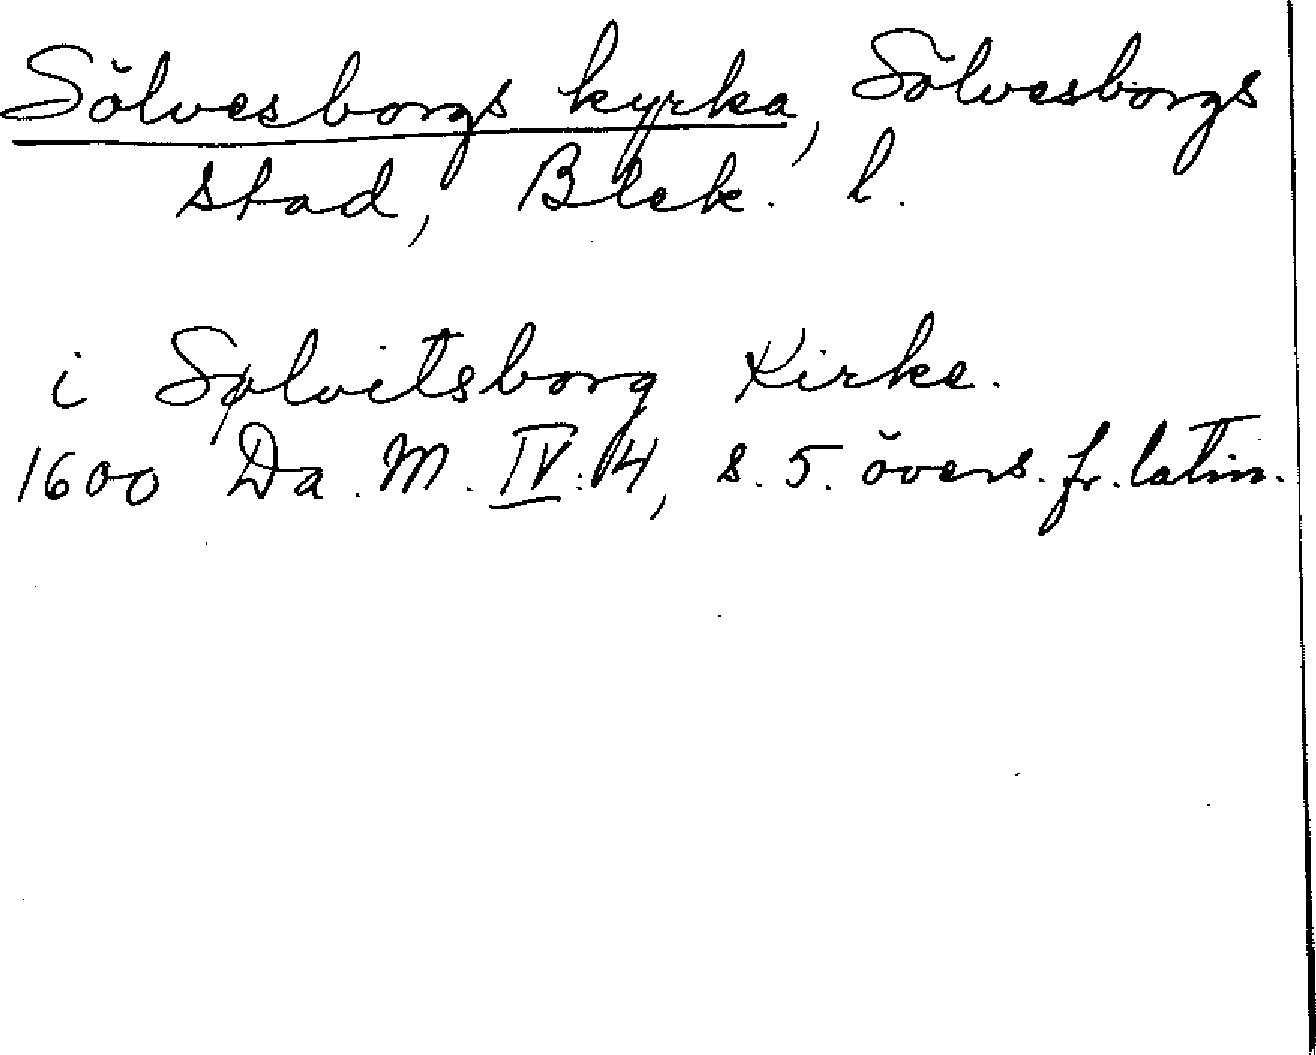 Sölvesborgs kyrka, Sölvesborgs
stad, Blek. l.
i Sølvitsborg Kirke.
1600 Da. M. IV: 4, s. 5. övers. fr. latin.